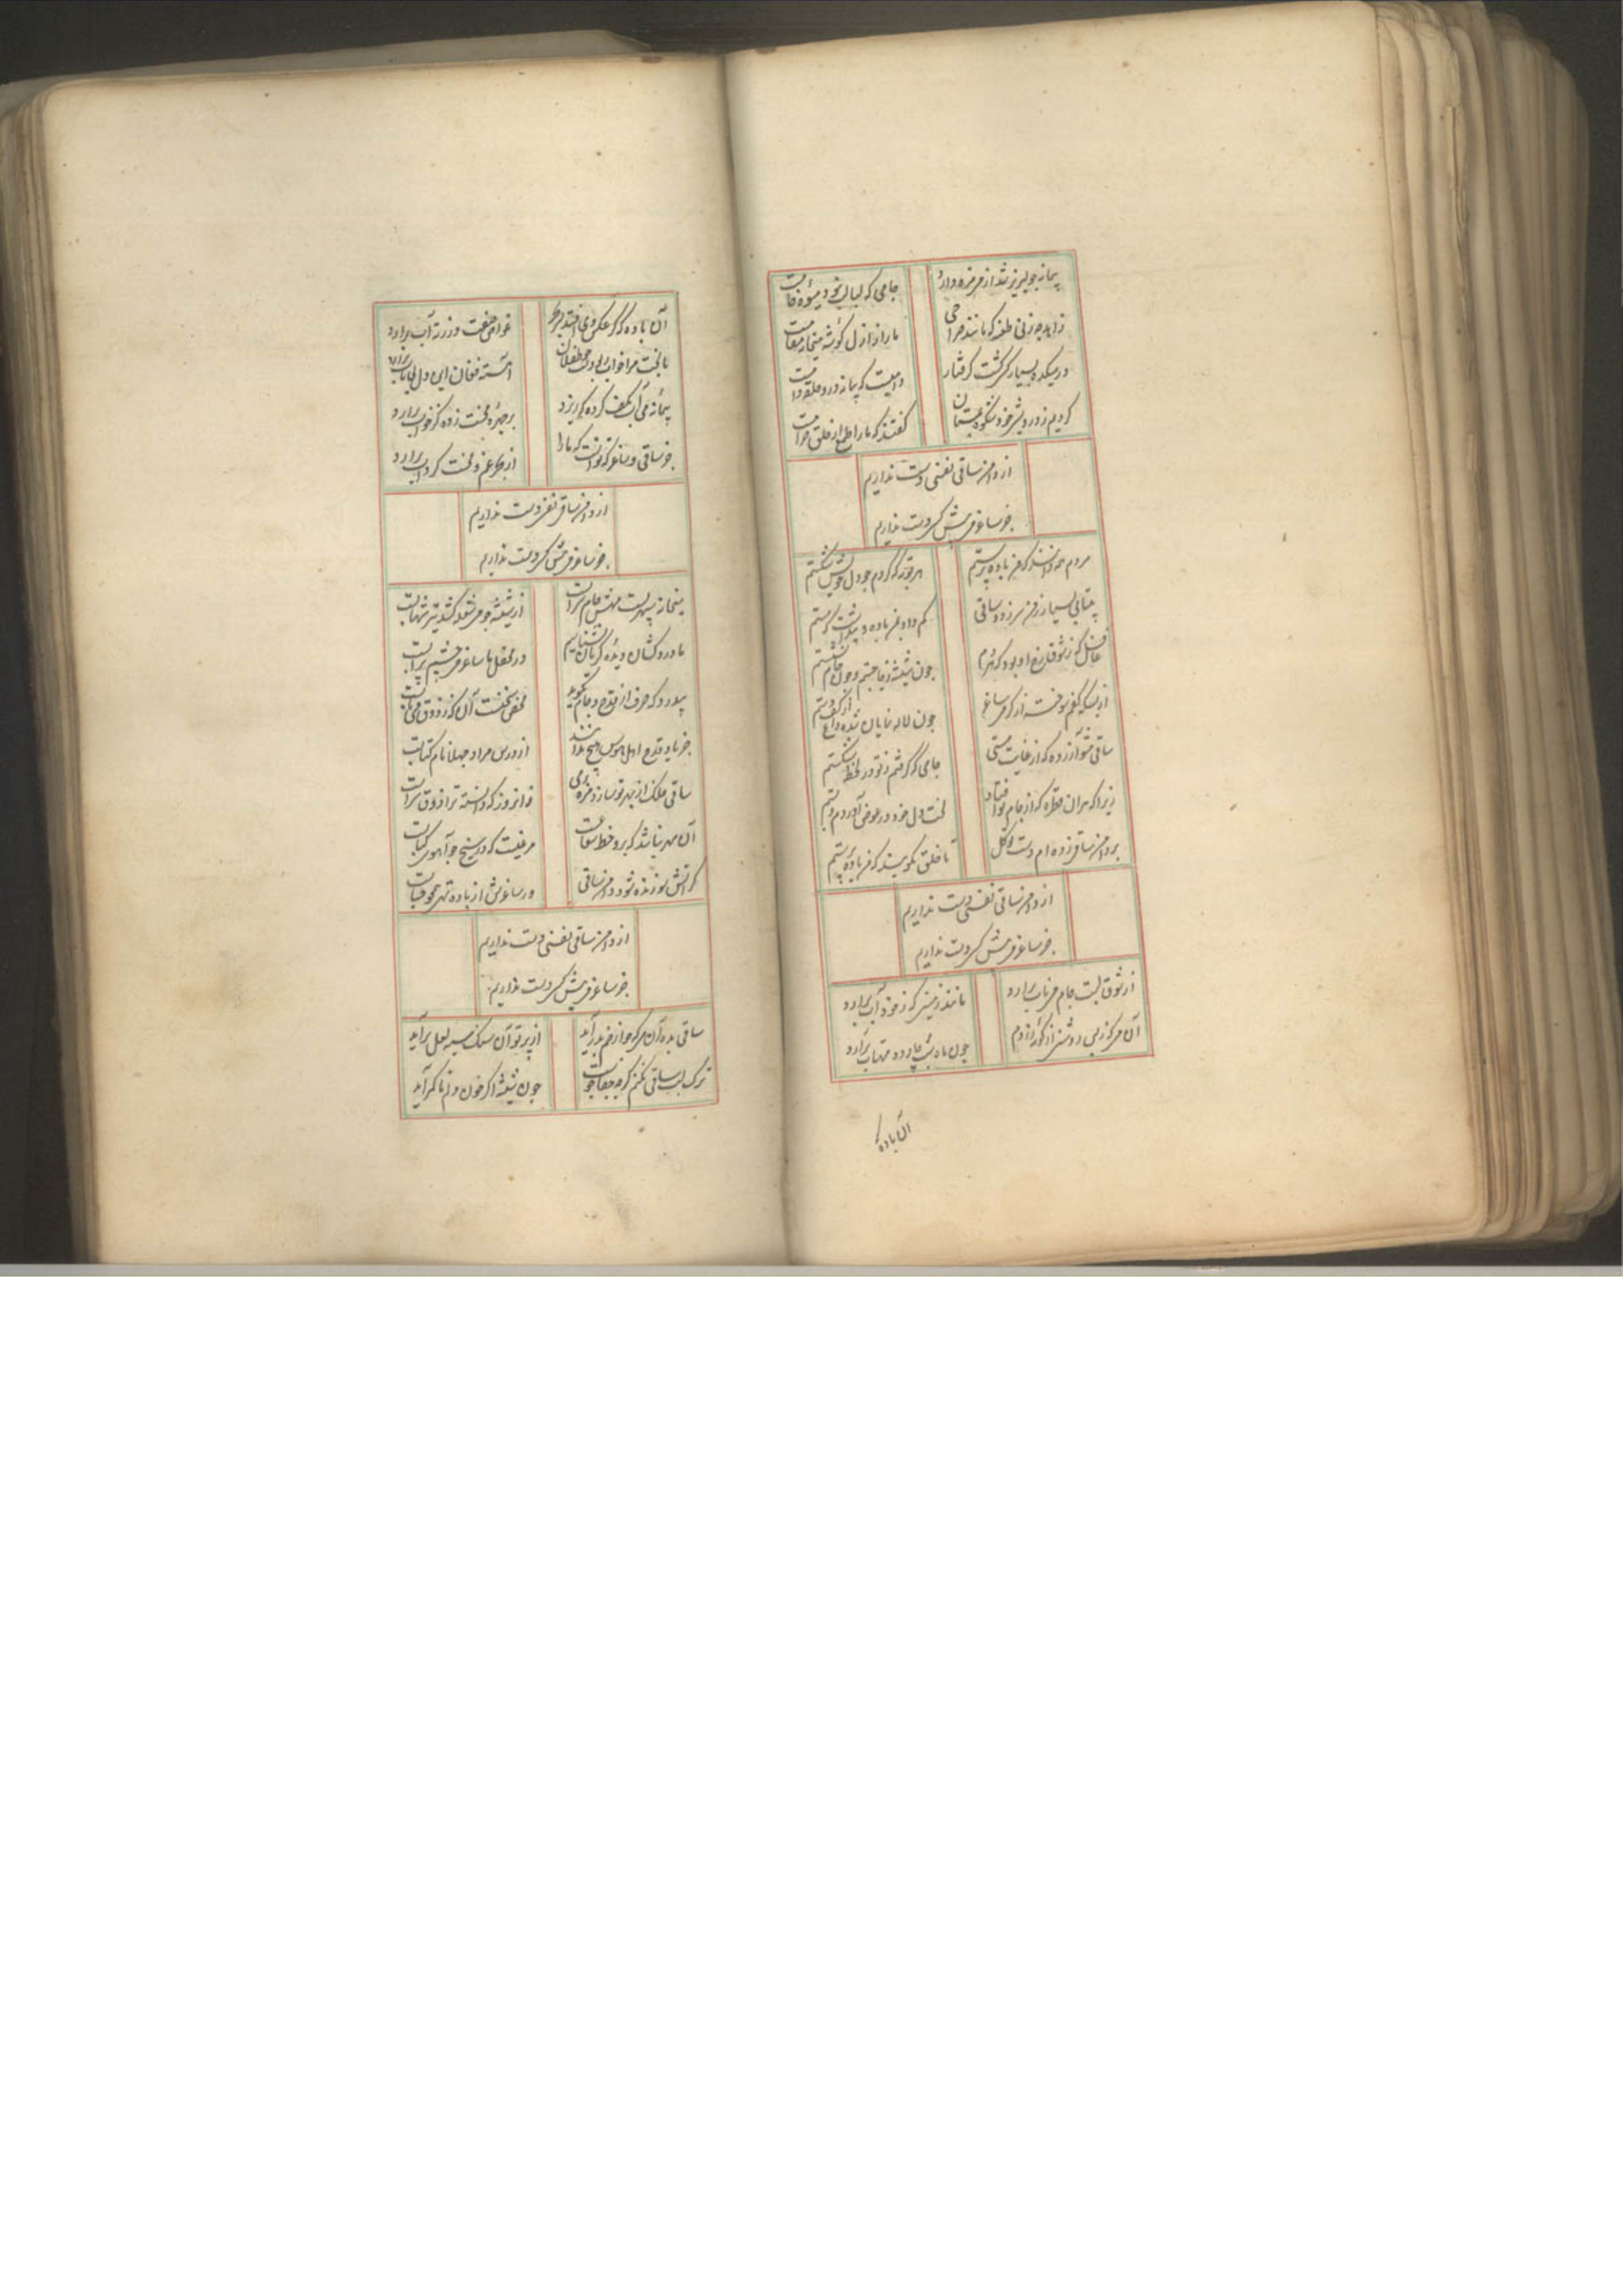 پیمانه جو لبریز شد از می مزه دارد جامی که لبالب نبود میوهٔ خامست
زاهد چه زنی طعنه که مانند صراحی ما را ز ازل گوشهٔ میخانه مقامست
در میکده بسیار کس گشت گرفتار دامیست که پیمانه درو حلقهٔ دامست
کردیم ز درویشی خود شکوه بمستان گفتند که ما را طمع از خلق حرامست
از دامن ساقی نفسی دست نداریم
جز ساغر می پیش کسی دست نداریم
مردم همه دانند که من باده پرستم هر توبه که کردم جو دل خویش شکستم
بیتابی بسیار ز من سر زد و ساقی کم داد بمن باده و پنداشت که مستم
غافل که ز شوق رخ او بود که هر دم جون شیشه ز جا جستم و جون جام نشستم
از بسکه کفم سوخته از گرمی ساغر جون لاله نمایان شده داغ از کف دستم
ساقی مشو آزرده که از غایت مستی جامی که گرفتم ز تو در لحظه شکستم
زیرا که هر آن قطره که از جام تو افتاد لخت دل خود در عوض آوردم و بستم
بر دامن ساقی زده ام دست توکل تا خلق نگویند که من باده پرستم
از دامن ساقی نفسی دست نداریم
جز ساغر می پیش کسی دست نداریم
از شوق لبت جام می ناب برآرد مانند زمینی که ز خود آب برآرد
آن می که ز بس روشنی از کوزه زدم جون ماه شب چارده مهتاب برآرد
آن باده
آن باده که گر عکس وی افتد غواص صفت در ز ته آب برآرد
با بخت مرا خواب طفلان آهسته فغان این دل بیتاب برآرد
پیمانه می آب بکف کرده که ریزد بر چهرهٔ بخت زده کز خواب برآرد
جز ساقی و ساغر که توانست که ما را از بحر غم و محنت گرداب برآرد
از دامن ساقی نفسی دست نداریم
جز ساغر می پیش کسی دست نداریم
میخانه سپهریست مهش جام شرابست از شیشه جو می شعله کشد تیر شهابست
ما دردکشان دیده گریان نشناسیم در محفل ما ساغر می چشم پر آبست
بیدرد که حرف از قدح و جام نگوید محض سخنست آن که ز ذوق می نابست
جز یاد قدح اهل هوس هیچ ندانند از درس مراد جهلا نام کتابست
ساقی ملک از بهر تو سازد مزه می زانروز که دانسته ترا ذوق شرابست
آن مهر نباشد که برو خط شعاعست مرغیست که در سیخ جو آهوی کبابست
گر آتش سوزنده شود دامن ساقی ور ساغرش از باده تهی همجو حبابست
از دامن ساقی نفسی دست نداریم
جز ساغر می پیش کسی دست نداریم
ساقی بده آن می که جو از خم بدر آید از پرتو آن سنک سیه لعل برآید
ترک لب ساقی نکنم گرچه جفاجوست جون شیشه اگر خون دلم تا کمر آید